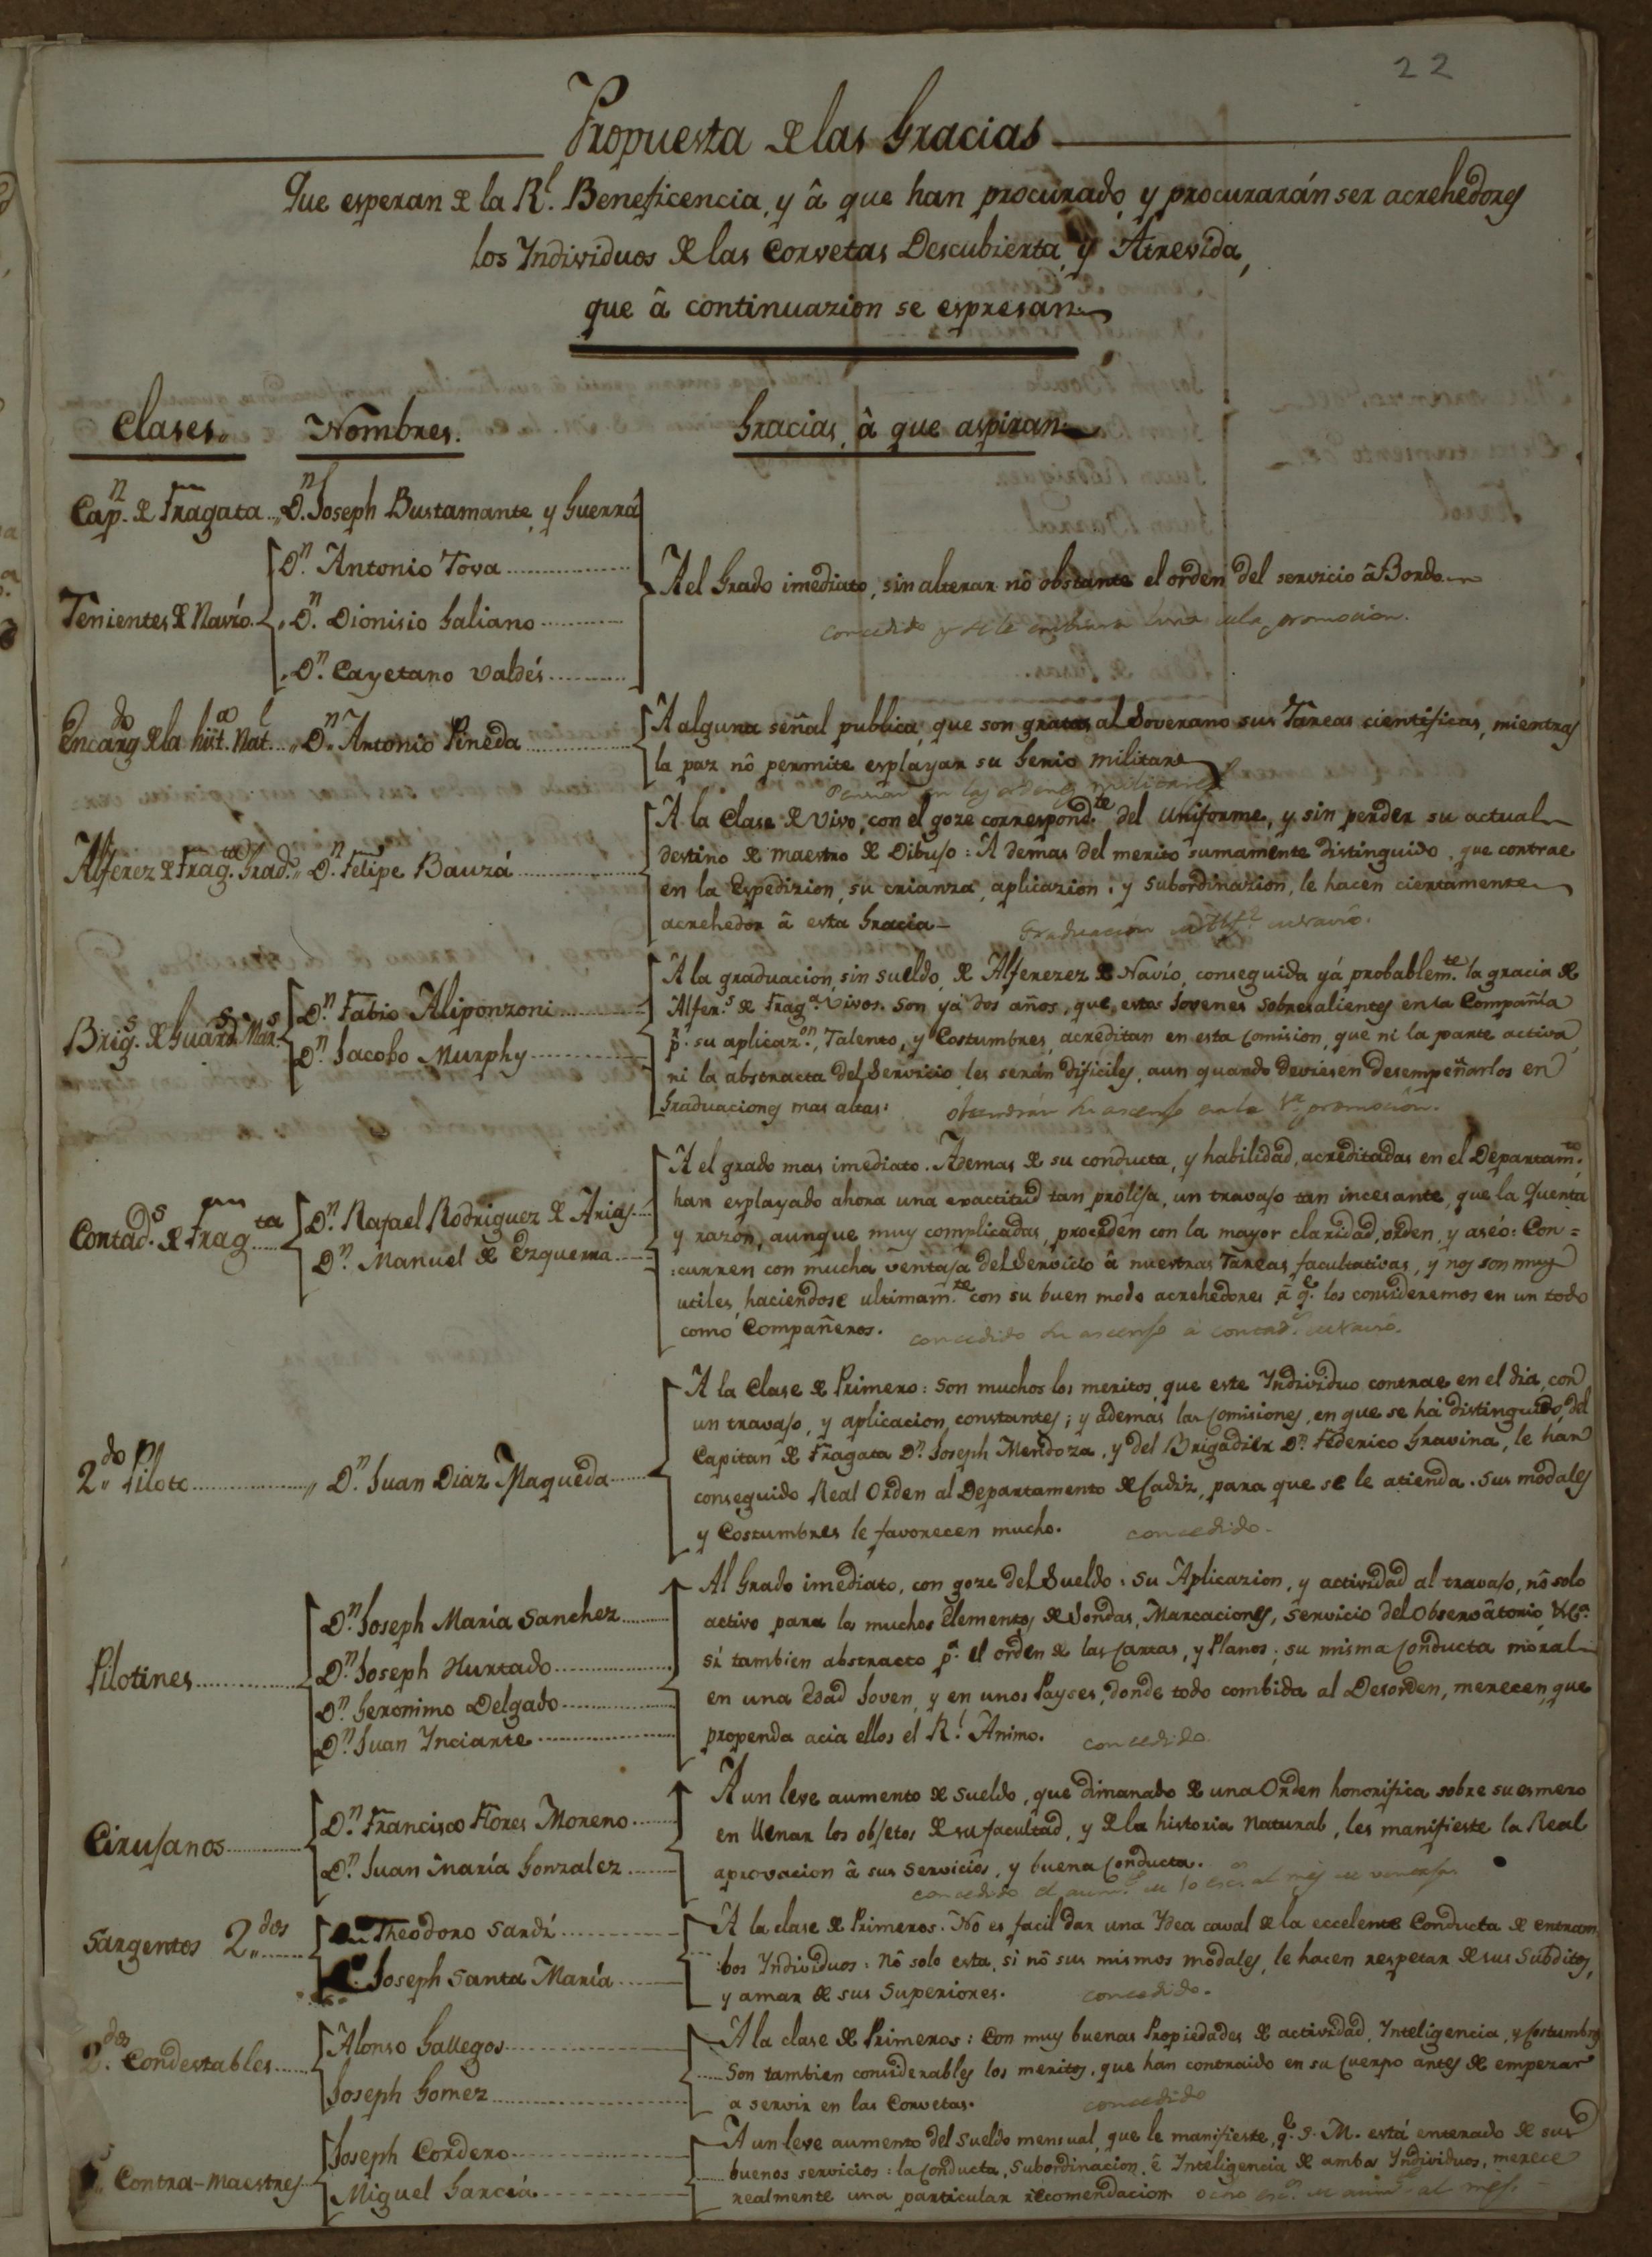 22
Propuesta de las Gracias
Que esperan de la Rl. Beneficencia, y â que han procurado, y procurarán ser acrehedores
los Yndividuos de las Corvetas Descubierta, y Atrevida,
que â continuazion se espresan.
Clases. Nombres. Gracias, â que aspiran.
Capn. de Fragata .. Dn. Joseph Bustamante, y Guerra
Tenientes de Navío.
Dn. Antonio Tova
Dn. Dionisio Galiano
Dn. Cayetano Valdés
A el Grado imediato, sin alterar nô obstante el orden del servicio â Bordo.
concedido y se le embiara luna promocion.
Encargdo de la hista. Natl. .. Dn. Antonio Pineda
A alguna señal publica, que son gratas al Soverano sus Tareas cientificas, mientras
la paz nô permite esplayar su Genio militar.
Pension en las ordenes militares
Alferez de Fragta. Grado. Dn. Felipe Bauzá
A la Clase de Vivo, con el goze correspondte. del Uniforme, y sin perder su actual
destino de Maestro de Dibujo: A demas del merito sumamente distinguido, que contrae
en la Espedizion, su crianza, aplicazion, y subordinazion, le hacen ciertamente
acrehedor â esta Gracia
Graduación navío.
Brigs. de Guards. Mars.
Dn. Fabio Aliponzoni
Dn. Jacobo Murphy
A la graduacion, sin sueldo, de Alferezez de Navío, conseguida yá probablemte. la gracia de
Alfers. de Fraga. Vivos. Son ya dos años, que, estos Jovenes sobresalientes en la Compañía
pr. su aplicazon., Talento, y Costumbres, acreditan en esta Comision, que ni la parte activa,
ni la abstracta del Servicio, les serán dificiles, aun quando deviesen desempeñarlos en
Graduaciones mas altas.
obtendrán su ascenso en la 1a. promocion.
Contads. de Fragta
Dn. Rafael Rodriguez de Arias
Dn. Manuel de Ezquerra
A el grado mas imediato. Ademas de su conducta, y habilidad, acreditadas en el Departamto.
han esplayado ahora una exactitud tan prolija, un travajo tan incesante, que la Quenta
y razon, aunque muy complicadas, proceden con la mayor claridad, orden, y aséo: Con=
:curren con mucha ventaja del Servicio â nuestras Tareas facultativas, y nos son muy
utiles, haciendose ultimamte. con su buen modo acrehedores â qe. los consideremos en un todo
como Compañeros.
concedido su ascenso a contadr.
2do. Piloto .. Dn. Juan Diaz Maqueda
A la Clase de Primero: Son muchos los meritos, que este Yndividuo contrae en el dia, con
un travajo, y aplicacion, constantes; y además las Comisiones, en que se há distinguido, del
Capitan de Fragata Dn. Joseph Mendoza, y del Brigadier Dn. Federico Gravina, le han
conseguido Real Orden al Departamento de Cadiz, para que se le atienda. Sus modales
y Costumbres le favorecen mucho.
concedido.
Pilotines
Dn. Joseph María Sanchez
Dn. Joseph Hurtado
Dn. Geronimo Delgado
Dn. Juan Ynciarte
Al Grado imediato, con goze del Sueldo: Su Aplicazion, y actividad al travajo, nô solo
activo para los muchos Elementos de Sondas, Marcaciones, Servicio del Observâtorio &ca.
sí tambien abstracto pa. el orden de las Cartas, y Planos; su misma Conducta moral
en una Edad Joven, y en unos Payses, donde todo combida al Desorden, merecen, que
propenda acia ellos el Rl. Animo.
concedido.
Cirujanos
Dn. Francisco Flores Moreno
Dn. Juan María Gonzalez
A un leve aumento de Sueldo, que dimanado de una Orden honorifica sobre su esmero
en llenar los objetos de su facultad, y de la historia natural, les manifieste la Real
aprovacion â sus Servicios, y buena Conducta.
concedido el aumto. de 10 escs. al mes
Sargentos 2.dos
Theodoro Sardí
Joseph Santa María
A la clase de Primeros. No es facil dar una Ydea caval de la eccelente Conducta de entram
:bos Yndividuos: nô solo esta, si nô sus mismos modales, le hacen respetar de sus Subditos,
y amar de sus Superiores.
concedido.
2.dos Condestables
Alonso Gallegos
Joseph Gomez
A la clase de Primeros: Con muy buenas Propiedades de actividad, Ynteligencia, y Costumbres
Son tambien considerables los meritos, que han contraido en su Cuerpo antes de empezar
a servir en las Corvetas.
concedido
Contra-Maestres
Joseph Cordero
Miguel Garcia
A un leve aumento del Sueldo mensual, que le manifieste, qe. S. M. está enterado de sus
buenos servicios: la Conducta, Subordinacion, ê Ynteligencia de ambos Yndividuos, merece
realmente una particular recomendacion
ocho escs. de aumto. al mes.